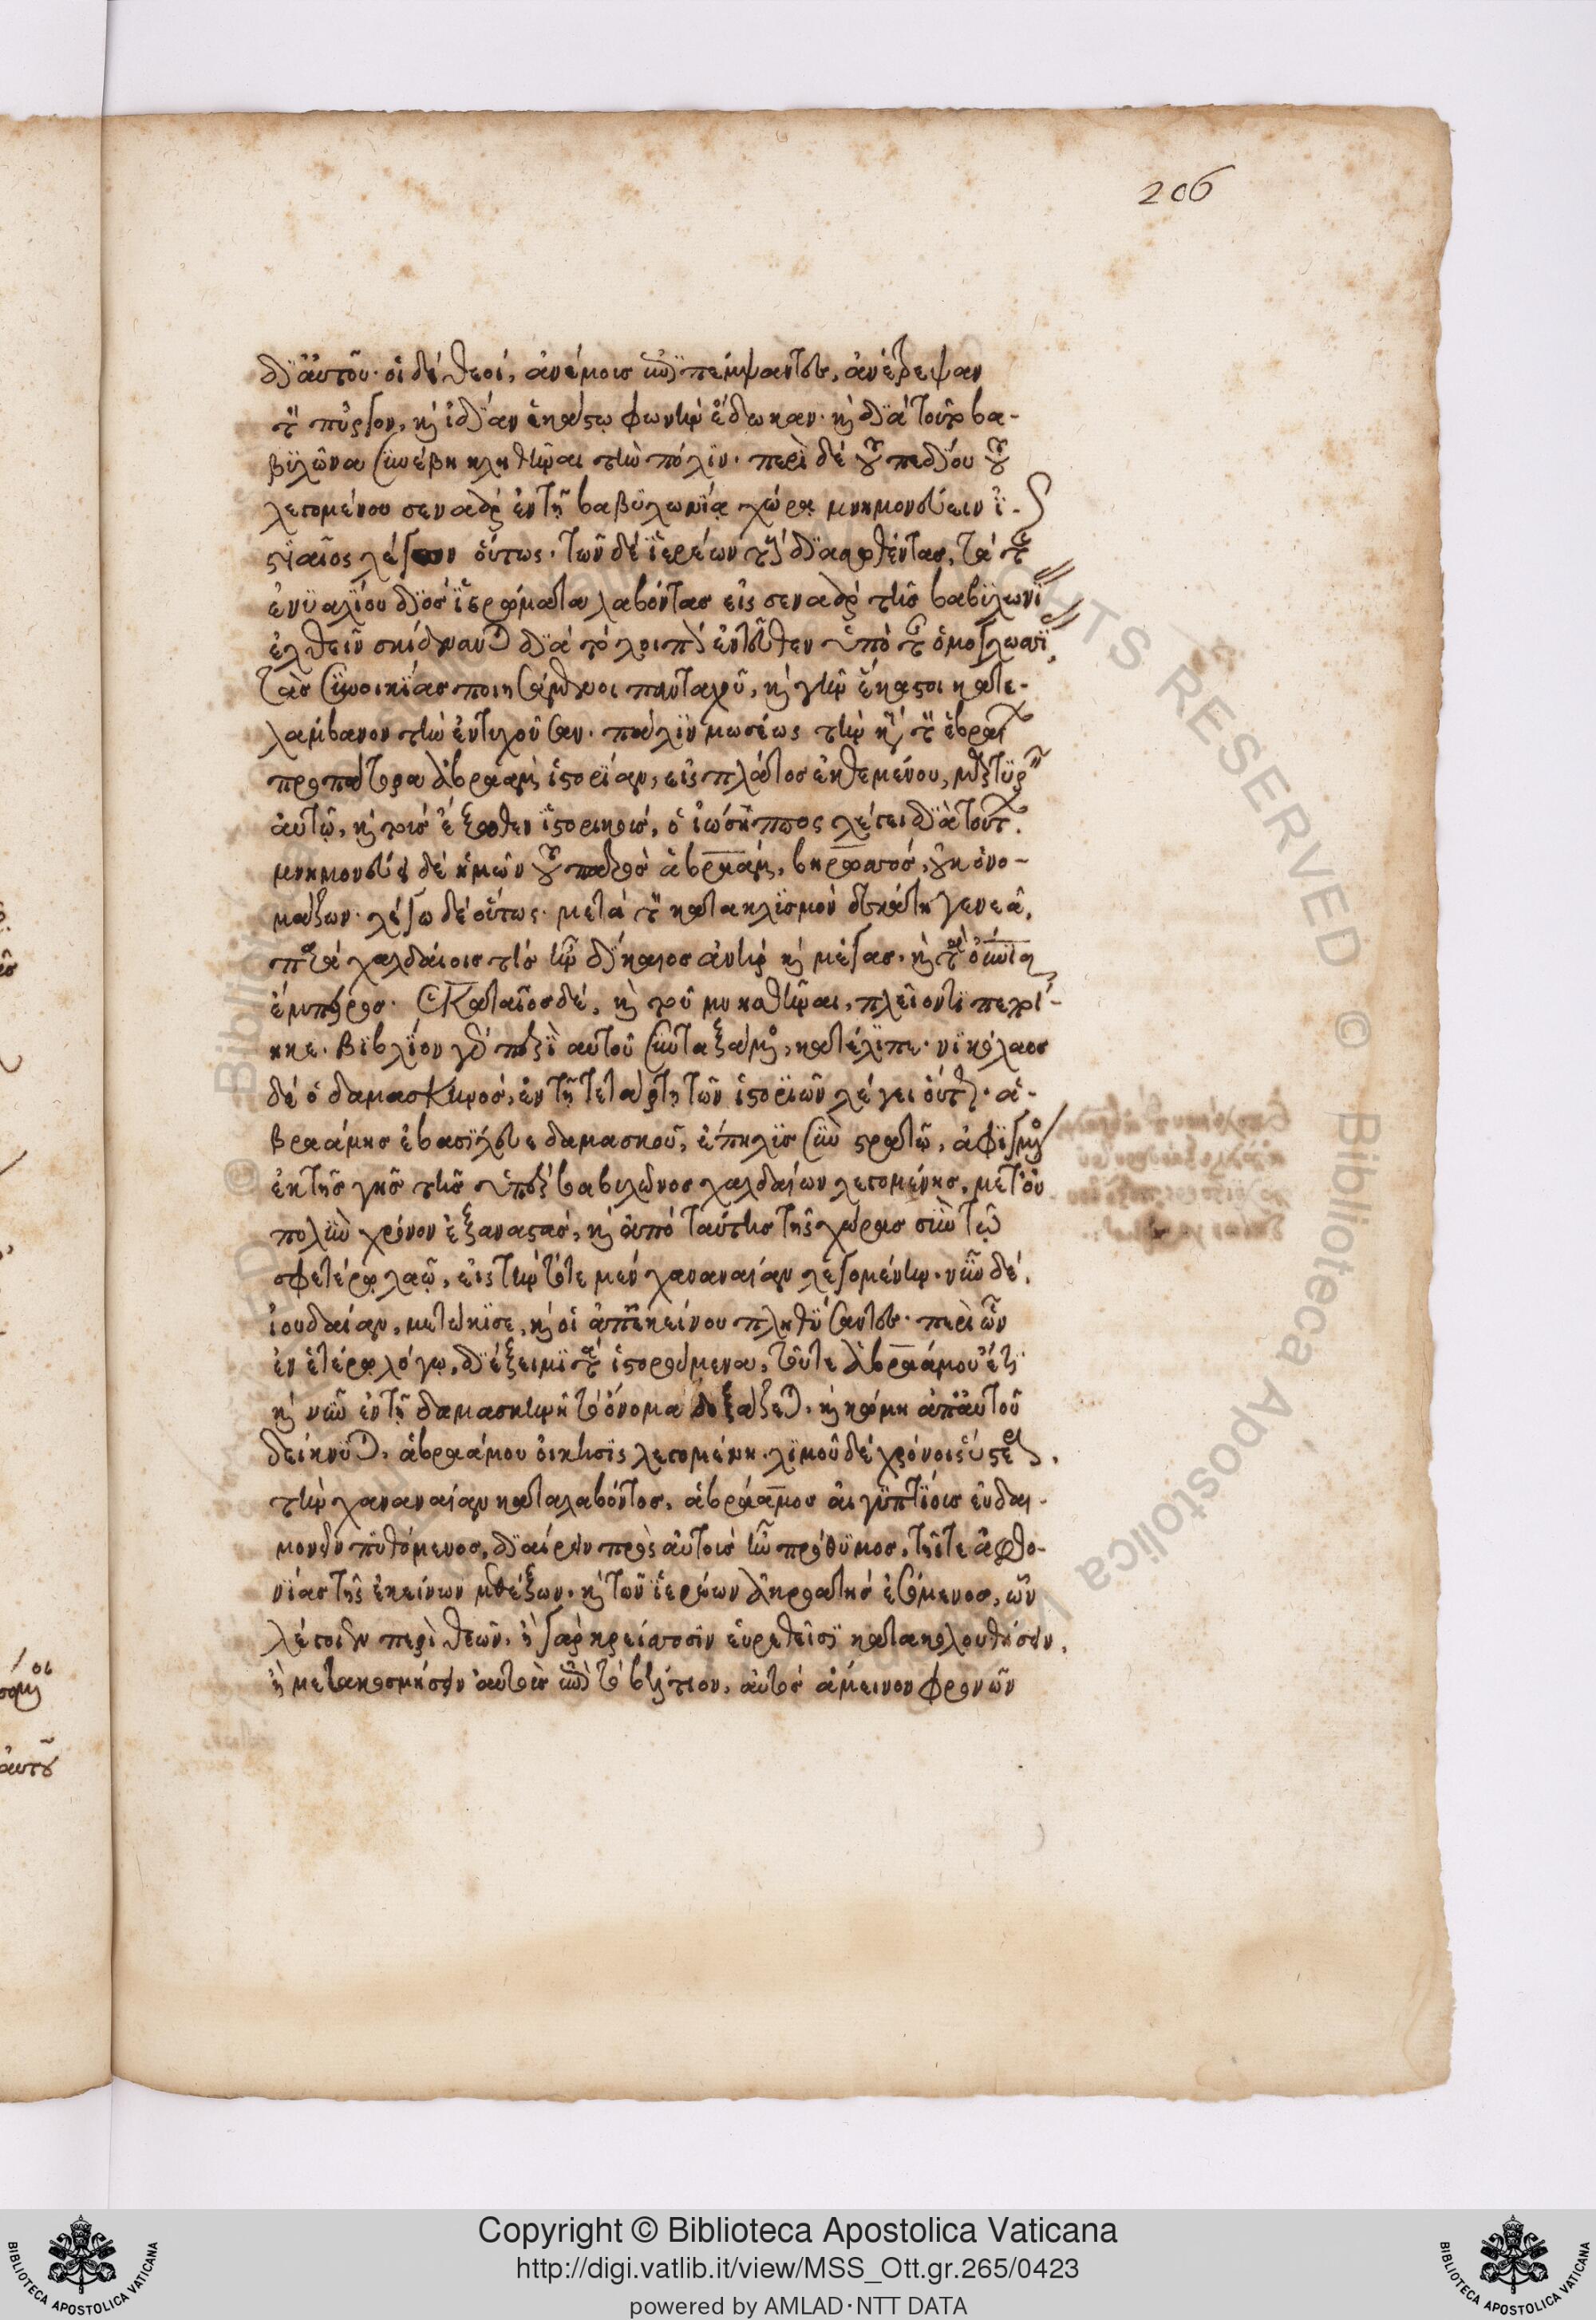 206
δι' αὐτοῦ· οἱ δὲ θεοί, ἀνέμοις ἐπιπέμψαντες, ἀνέτρεψαν
τὸν πύργον, καὶ ἰδίαν ἑκάστω φωνὴν ἔδωκαν· καὶ διὰ τοῦτο βα-
βυλῶνα συνέβη κληθῆναι τὴν πόλιν· περὶ δὲ τοῦ πεδίου τοῦ
λεγομένου σεναὰρ ἐν τῇ βαβυλωνία χώρα μνημονεύειν ἰ-
στιαῖος λέγων οὕτως· τῶν δὲ ἱερέων τοὺς διασωθέντας, τὰ τοῦ
ἐνυαλίου διὸς ἱερώματα λαβόντας εἰς σεναὰρ τῆς βαβυλωνί
ἐλθεῖν σκίδνανται διὰ τὸ λοιπὸν ἐντεῦθεν ὑπὸ τῆς ὁμογλωσσί
τὰς συνοικίας ποιησάμενοι πανταχοῦ, καὶ γῆν ἕκαστοι κατε-
λάμβανον τὴν ἐντυχοῦσαν· πάλιν μωσέως τὴν κατὰ τὸν ἑβραίων
προπάτορα ἀβραὰμ ἱστορίαν, εἰς πλάτος ἐκθεμένου, μαρτυρεῖν
αὐτῷ, καὶ τοὺς ἔξωθεν ἱστορικούς, ὁ ἰώσηππος λέγει διὰ τούτων.
μνημονεύει δὲ ἡμῶν τοῦ πατρὸς ἀβραὰμ, βηρωσσός, οὐκ ὀνο-
μάζων· λέγω δὲ οὕτως· μετὰ τὸν κατακλισμὸν δεκάτη γενεᾶ,
παρὰ χαλδαίοις τὶς ἦν δίκαιος ἀνὴρ καὶ μέγας, καὶ τὰ οὐράνια
ἔμπειρος· Ἑκαταῖος δέ, καὶ τοῦ μνησθῆναι, πλεῖόν τι πεποί-
ηκε· βιβλίον γὰρ περὶ αὐτοῦ συνταξάμενος, κατέλιπε· νικόλαος
δὲ ὁ δαμασκηνός, ἐν τῇ τετάρτη τῶν ἱστοριῶν λέγει οὕτως· ἀ-
βραάμης ἐβασίλευε δαμασκοῦ, ἔπηλις σὺν στρατῷ, ἀφιγμένος
ἐκ τῆς γῆς τῆς ὑπὲρ βαβυλῶνος χαλδαίων λεγομένης, μετ' οὐ
πολὺν χρόνον ἐξαναστάς, καὶ ἀπὸ ταύτης τῆς χώρας σὺν τῷ
σφετέρῳ λαῷ, εἰς τὴν τότε μὲν χαναναίαν λεγομένην· νῦν δέ,
ἰουδαίαν, μετώκισε, καὶ οἱ ἀπ' ἐκείνου πληθύσαντες· περὶ ὧν
ἐν ἑτέρῳ λόγω, διέξειμι τὰ ἱστορούμενα, τοῦτε ἀβραάμου ἔτι
καὶ νῦν ἐν τῇ δαμασκηνῇ τὸ ὄνομα δοξάζεται, καὶ κώμη ἀπ' αὐτοῦ
δείκνυται, ἀβραάμου οἴκησις λεγομένη· λιμοῦ δὲ χρόνοις ὕστερον,
τὴν χαναναίαν καταλαβόντος, ἀβράαμος αἰγυπτίοις εὐδαι-
μονεῖν πυθόμενος, διαίρειν πρὸς αὐτοὺς ἦν πρόθυμος, τῆς τε ἀφθο-
νίας τῆς ἐκείνων μεθέξων, καὶ τῶν ἱερέων ἀκροατὴς ἐσόμενος, ὧν
λέγοιεν περὶ θεῶν, ἢ γὰρ κρείσσοσιν εὑρεθεῖσι κατακολουθήσειν,
ἢ μετακοσμήσειν αὐτοὺς ἐπὶ τὸ βέλτιον, αὐτὸς ἄμεινον φρονῶν
Copyright © Biblioteca Apostolica Vaticana
http://digi.vatlib.it/view/MSS_Ott.gr.265/0423
powered by AMLAD·NTT DATA